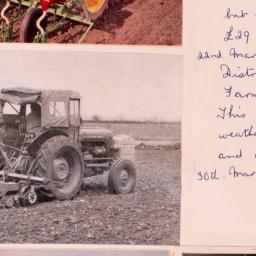 but
£29
22nd. Mar
Distri
Farm
This
weath
and
30th. Mar